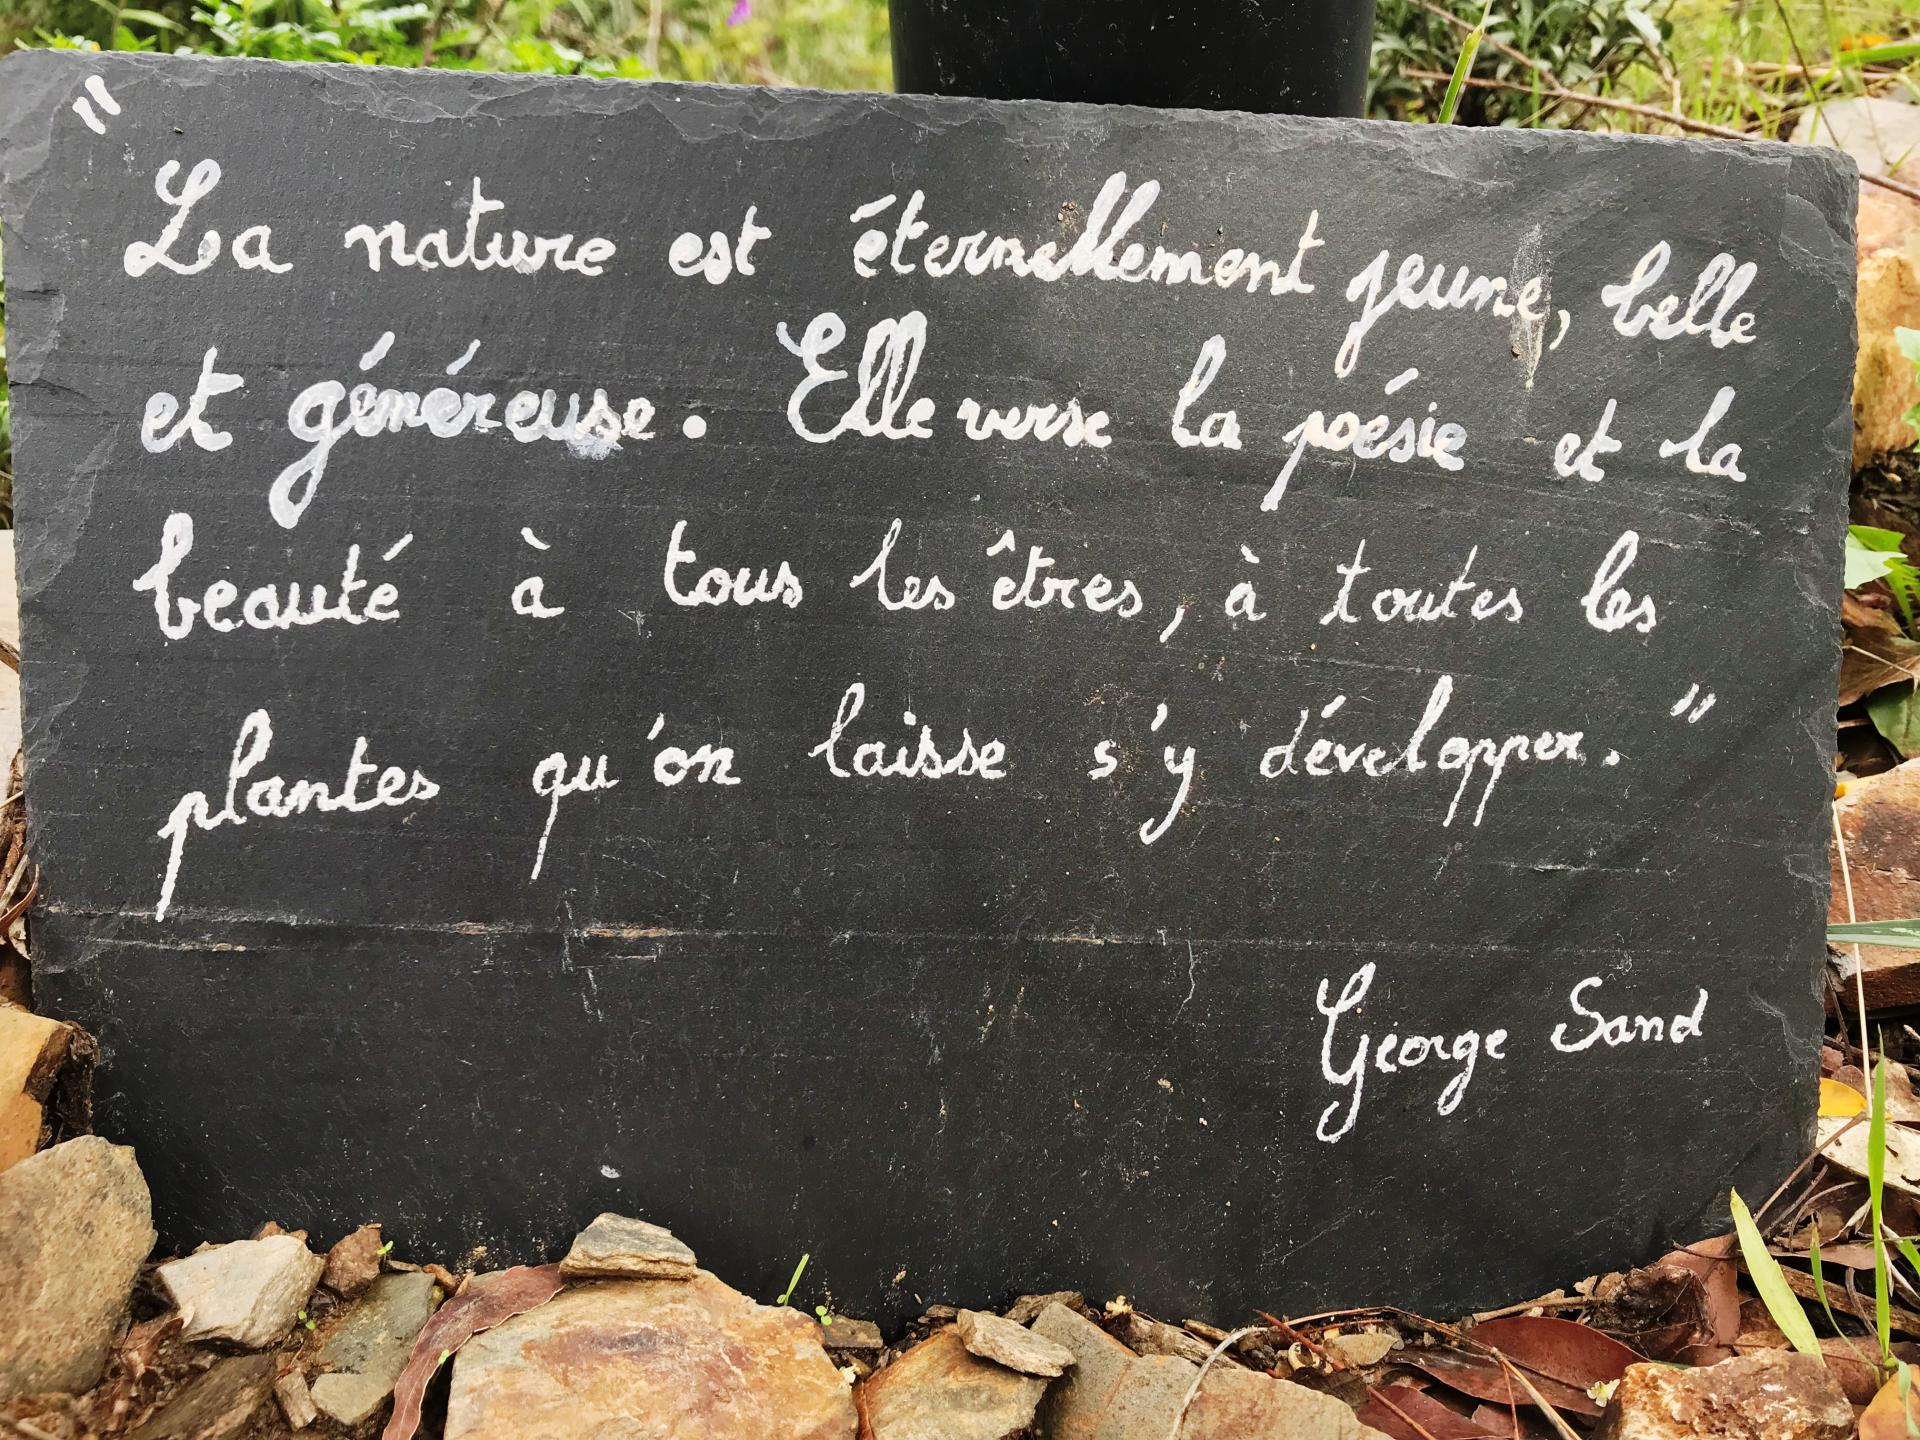 "
La nature est éternellement jeune, belle
et généreuse. Elle verse la poésie et la
beauté à tous les êtres, à toutes les
plantes qu'on laisse s'y développer."
George Sand